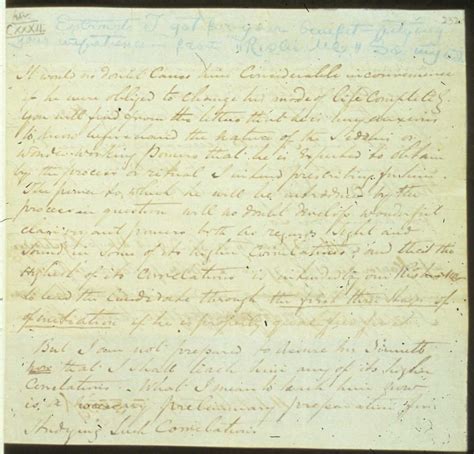 CXXXII
232
Extracts I got for your benefit pitying
your impatience — from "Rishi M."
It would no doubt cause him considerable inconvenience
if he were obliged to change his mode of life completely
You will find from the letters that he is very anxious
to know beforehand the nature of the Siddhis or
wonder-working powers that he is expected to obtain
by the process or ritual I intend prescribing for him.
The power to which he will be introduced by the
process in question will no doubt develope wonderful
clairvoyant powers both as regards sight and
sound in some of its higher correlations; and that the
highest of its correlations is intended by our Rishi M
to lead the candidate through the first three stages of
initiation if he is properly qualified for it.
But I am not prepared to assure Sinnett
now that I shall teach him any of its higher
correlations. What I mean to teach him now
is, a necessary preliminary preparation for
studying such correlations.